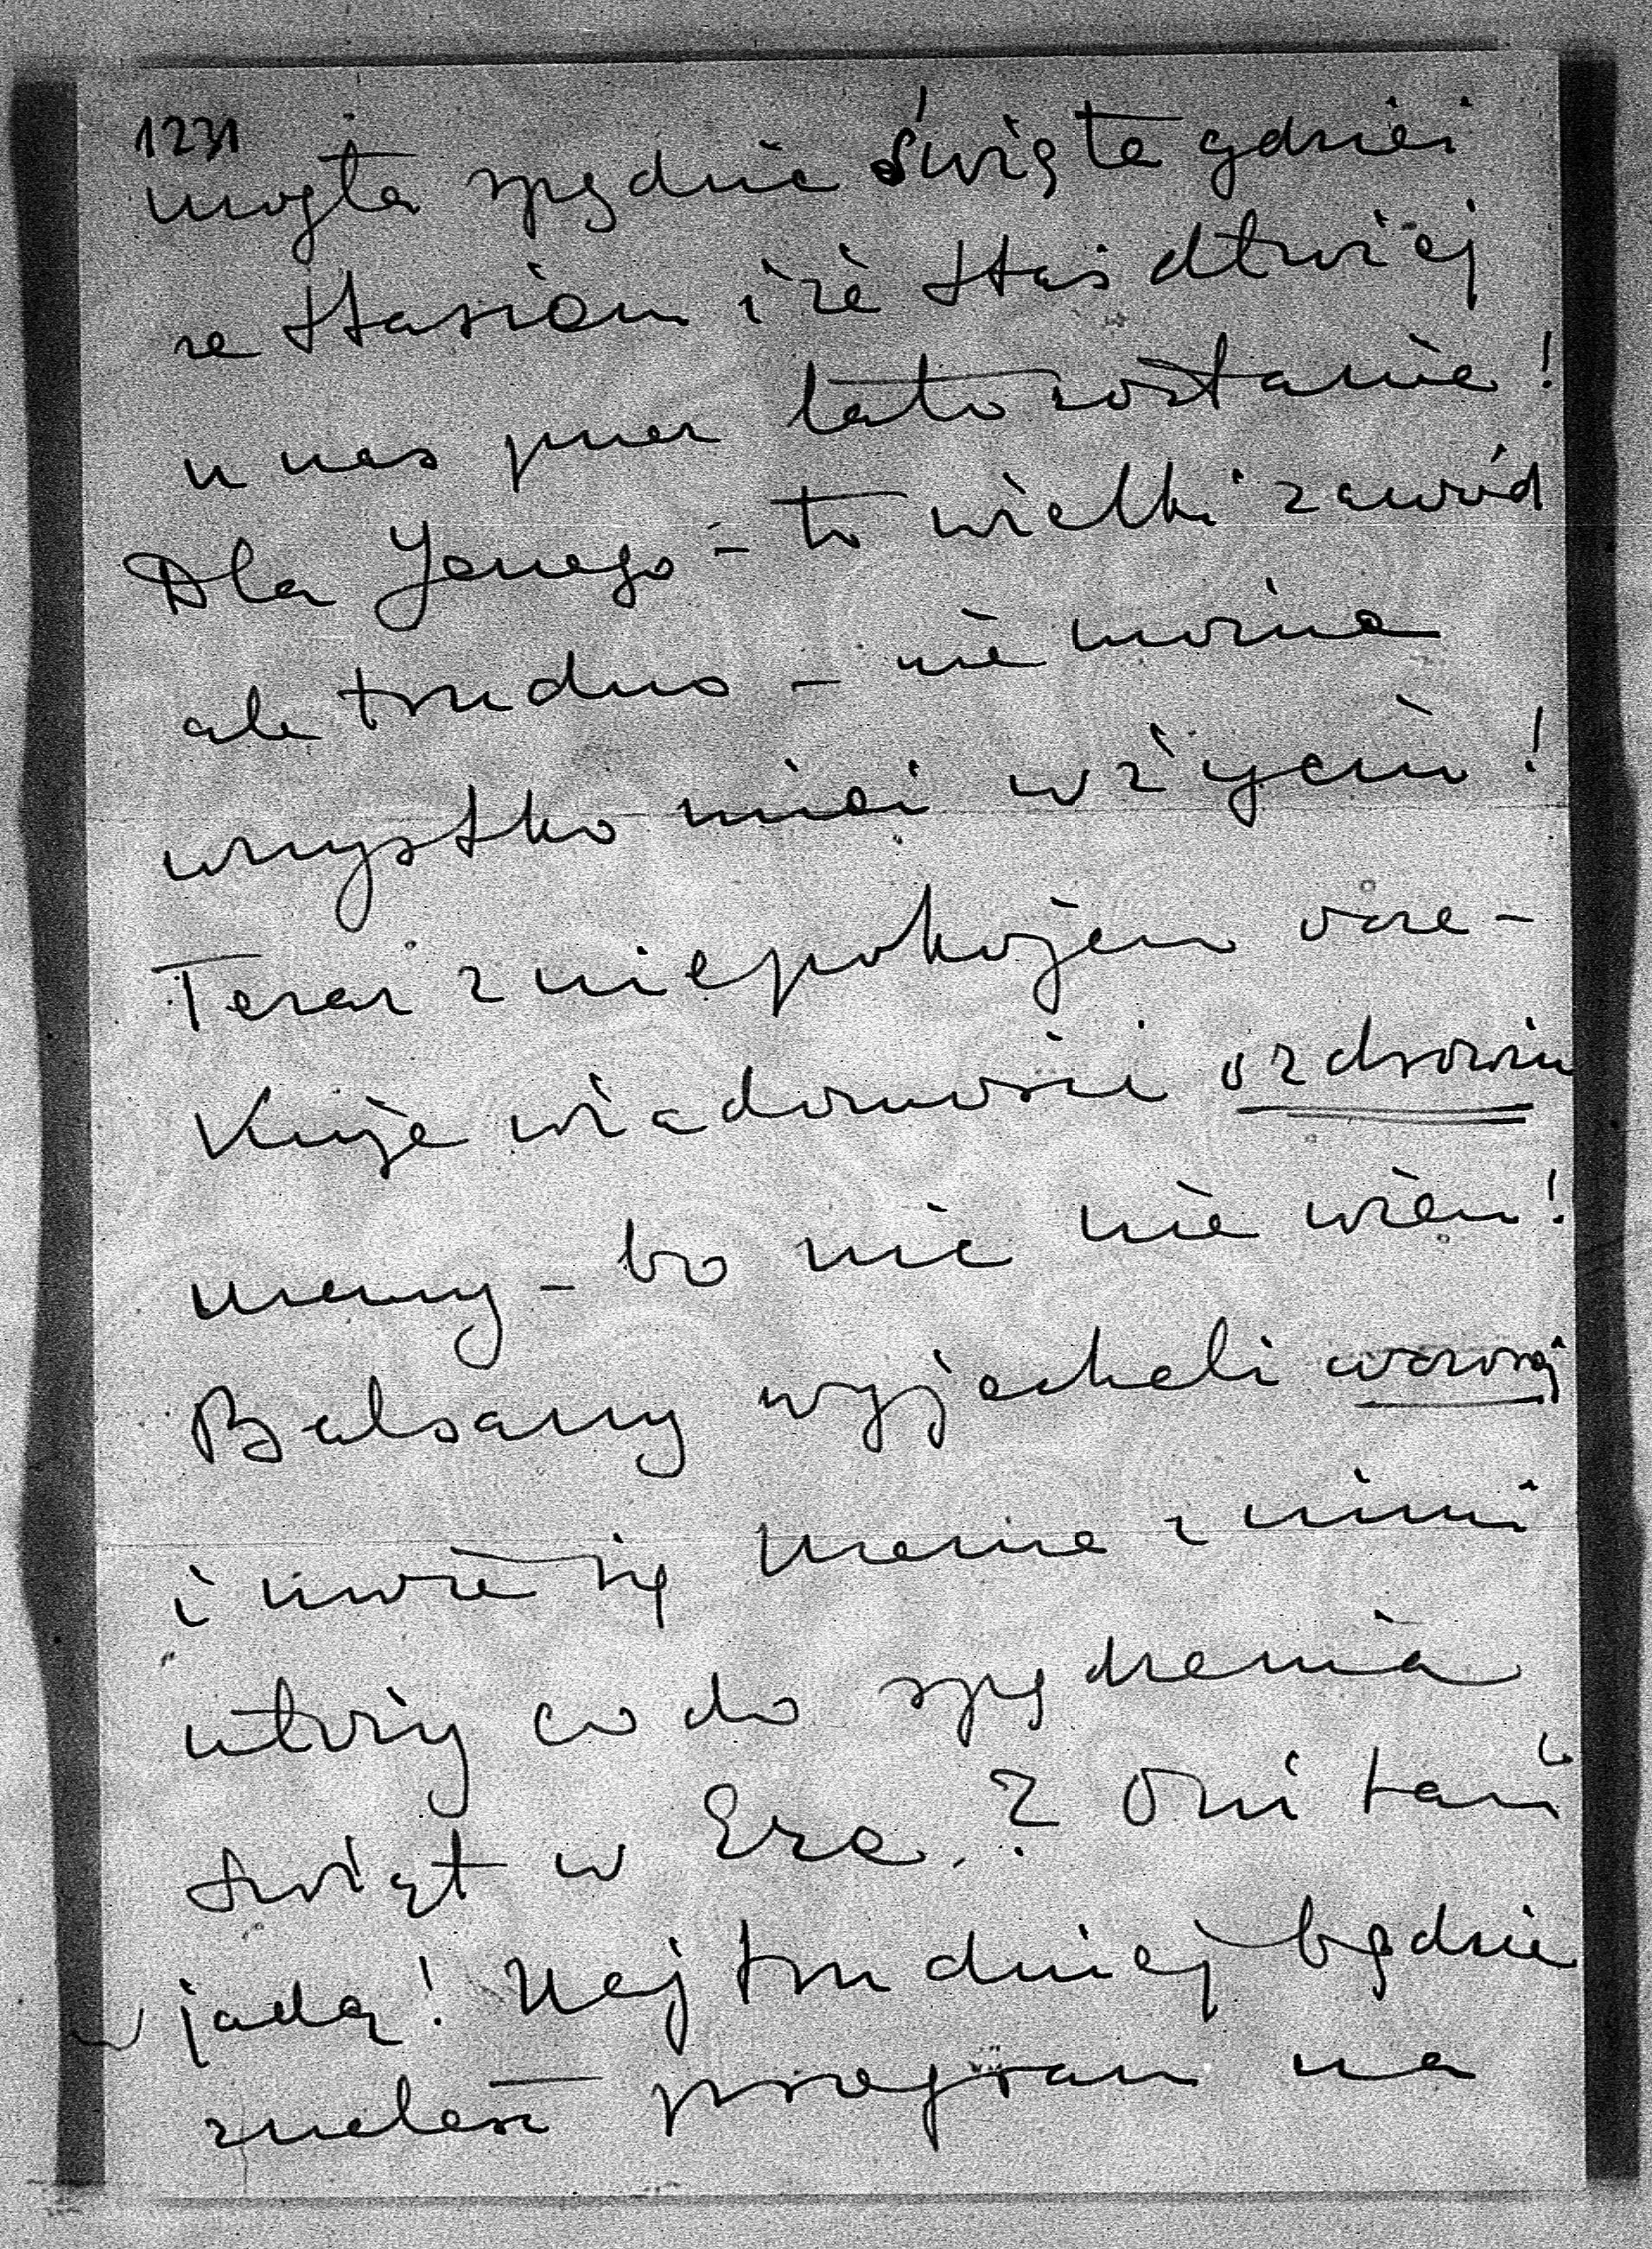 1231
mogła spędzić Święta gdzieś
ze Stasiem i że Staś dłużej
u nas przez lato zostanie!
Dla Janego - to wielki zawód
ale trudno - nie można
wszystko mieć w życiu!
Teraz z niepokojem ocze-
kuję wiadomości o zdrowiu
Mamy - bo nic nie wiem!
Balsamy wyjechali wczoraj
i umówić się Mania z nimi
co do spędzenia
świąt w Eze.? Oni tam
jadą! Najtrudniej będzie
znaleść program na